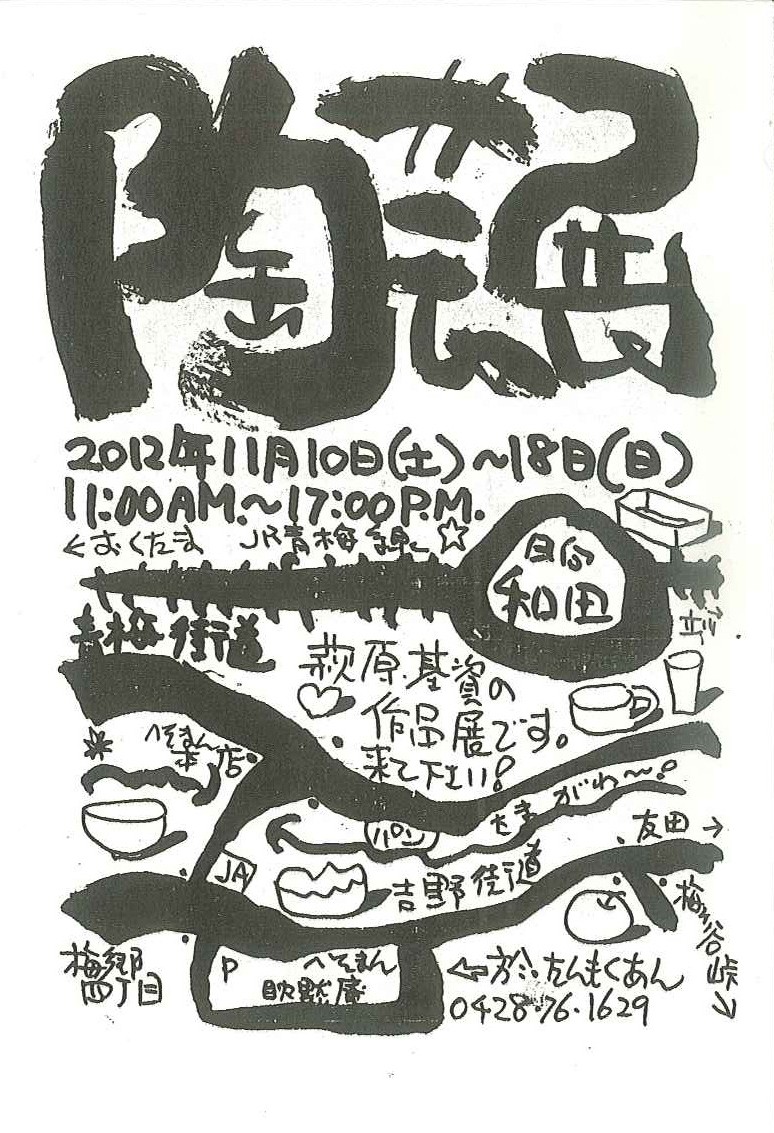 陶芸展
2012年11月10日(土)～18日(日)
11:00AM.～17:00P.M.
←おくたま JR青梅線 ☆
日向
和田
立川→
青梅街道
萩原基資の
作品展です。
来て下さい!
へそまん
本店
たまがわ～!
パン
友田→
JA
吉野街道
梅ヶ谷峠→
梅郷
四丁目
P
へそまん
←於:たんもくあん
0428・76・1629